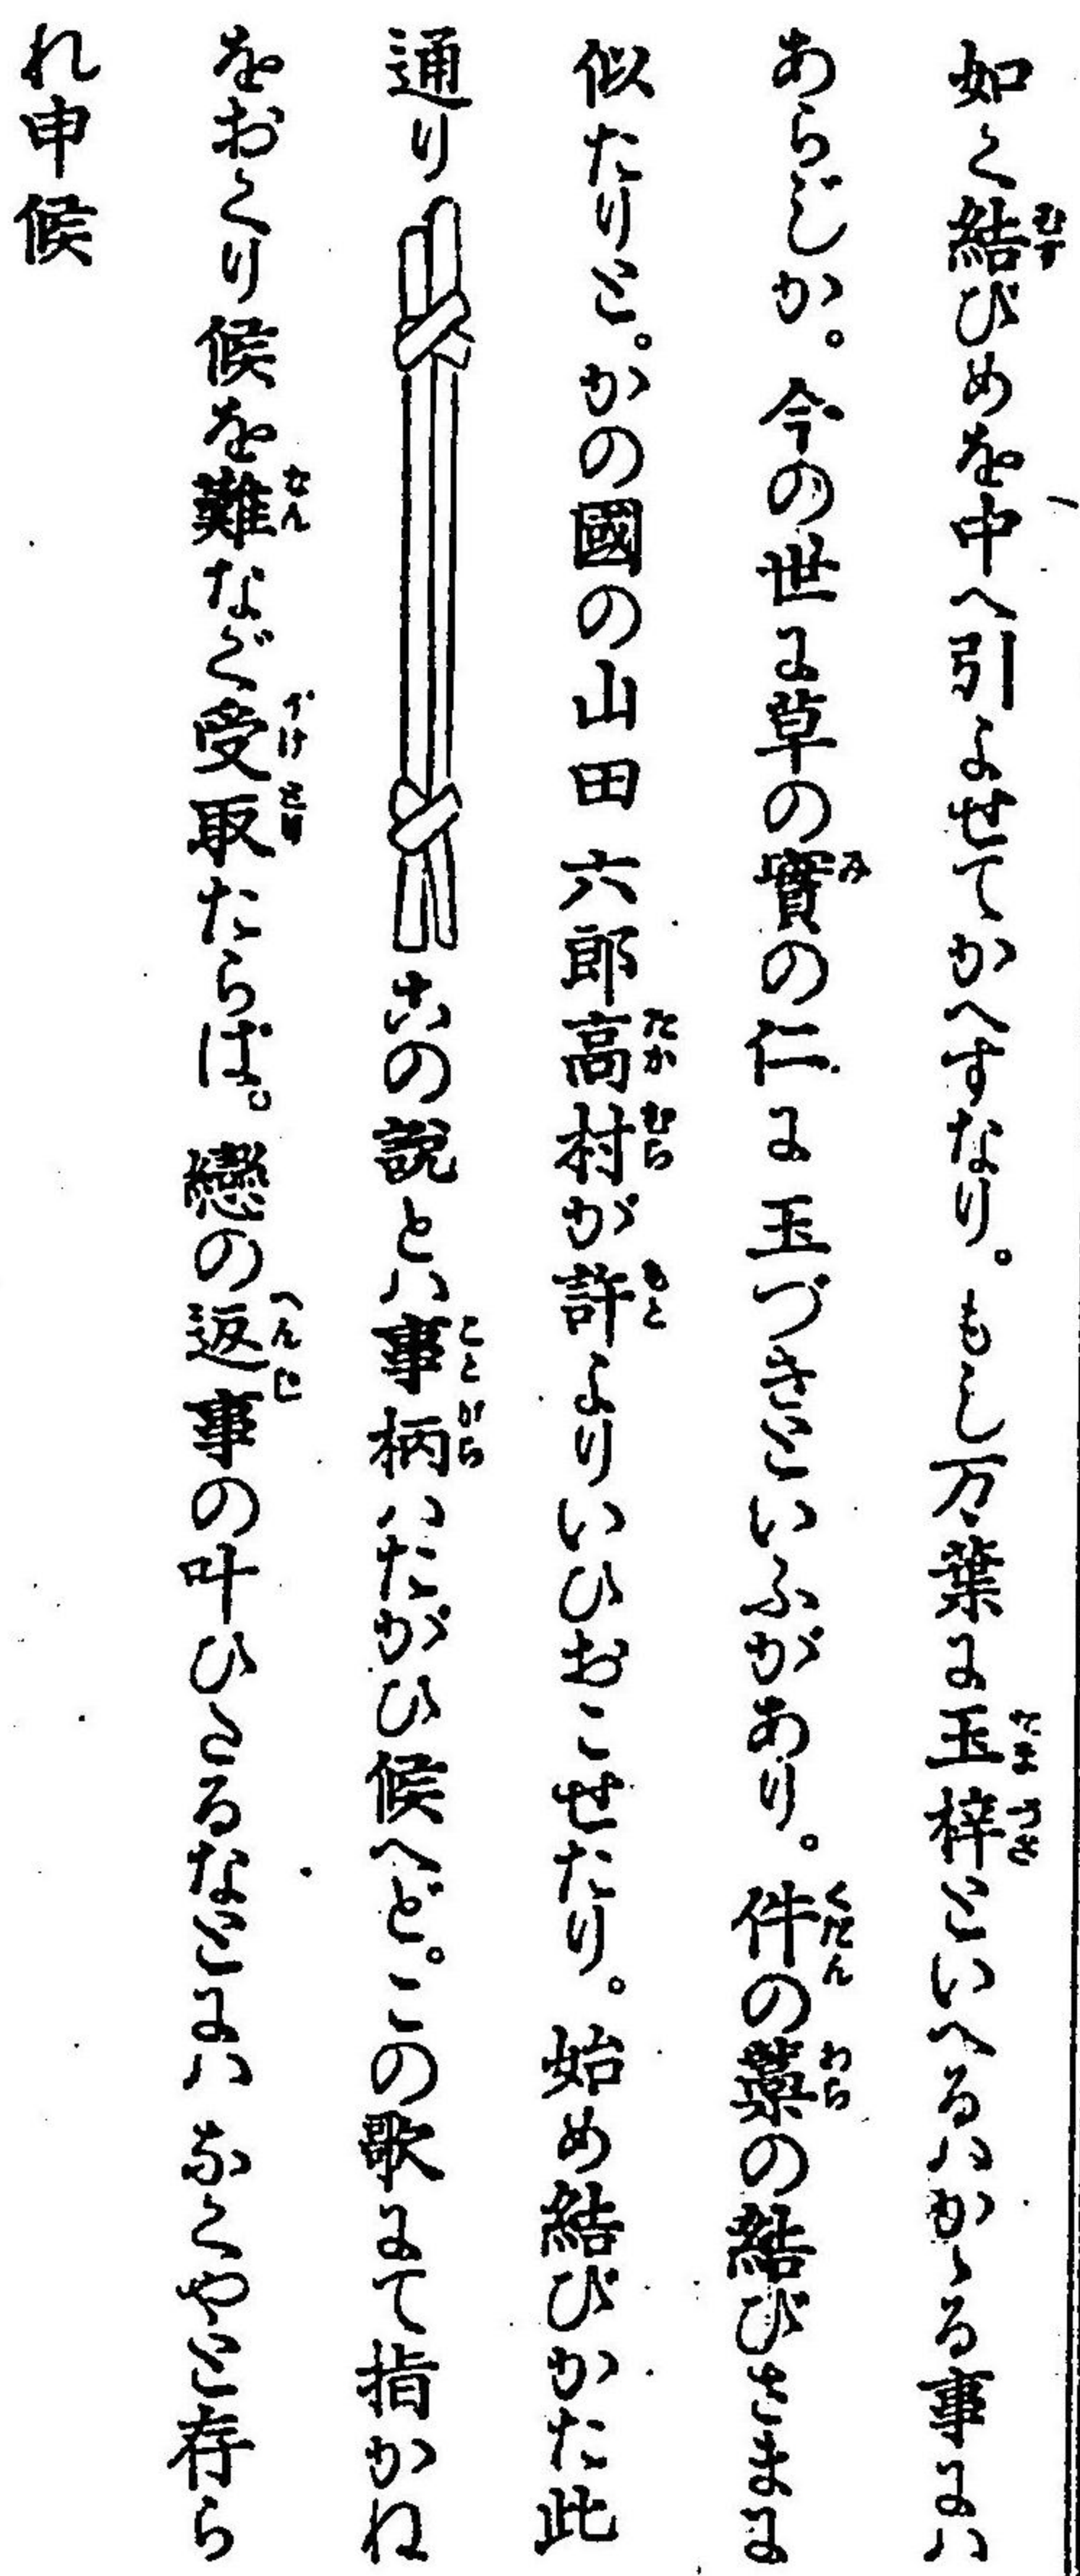 如く結びめを中へ引よせてかへすなり。もし万葉に玉梓といへるハかゝる事にハ
あらじか。今の世に草の實の仁に玉づさといふがあり。件の藁の結びさまに
似たりと。かの國の山田六郎高村が許よりいひおこせたり。始め結びかた此
通り
この説とハ事柄ハたがひ候へど。この歌にて指かね
をおくり候を難なく受取たらば。戀の返事の叶ひたるなとにハなくやと存ら
れ申候